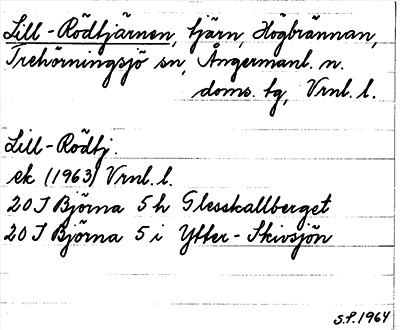 Lill-Rödtjärnen, tjärn, Högbrännan,
Trehörningsjö sn, Ångermanl. n.
doms. tg, Vrnl. l.
Lill-Rödtj.
ek (1963) Vrnl. l.
20 J Björna 5 h Flesskallberget
20 J Björna 5 i Ytter-Skivsjön
S.P. 1964